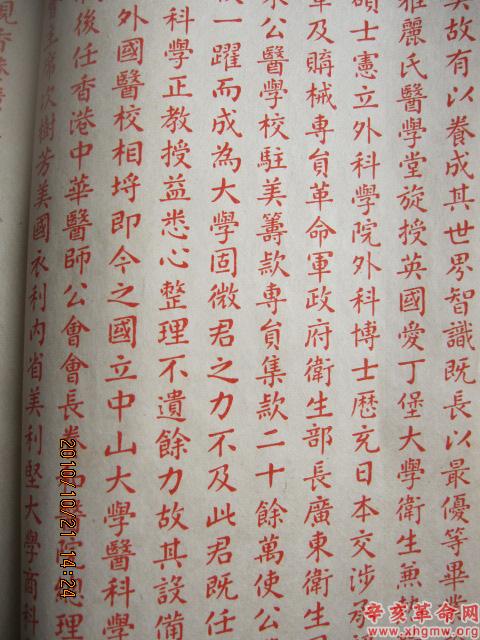 其故有以養成其世界智識既長以最優等畢業
雅麗氏醫學堂旋授英國愛丁堡大學衛生兼熱
碩士憲立外科學院外科博士歷充日本交涉承
軍及購械專員革命軍政府衛生部長廣東衛生
公醫學校駐美籌款專員集款二十餘萬使公
一躍而成為大學固微君之力不及此君既任
科學正教授益悉心整理不遺餘力故其設備
外國醫校相埒即今之國立中山大學醫科學
後任香港中華醫師公會會長養和醫院總理
主席次樹芳美國永利內省美利堅大學商科
2010/10/21 14:24
辛亥革命网
www.xhgmw.org